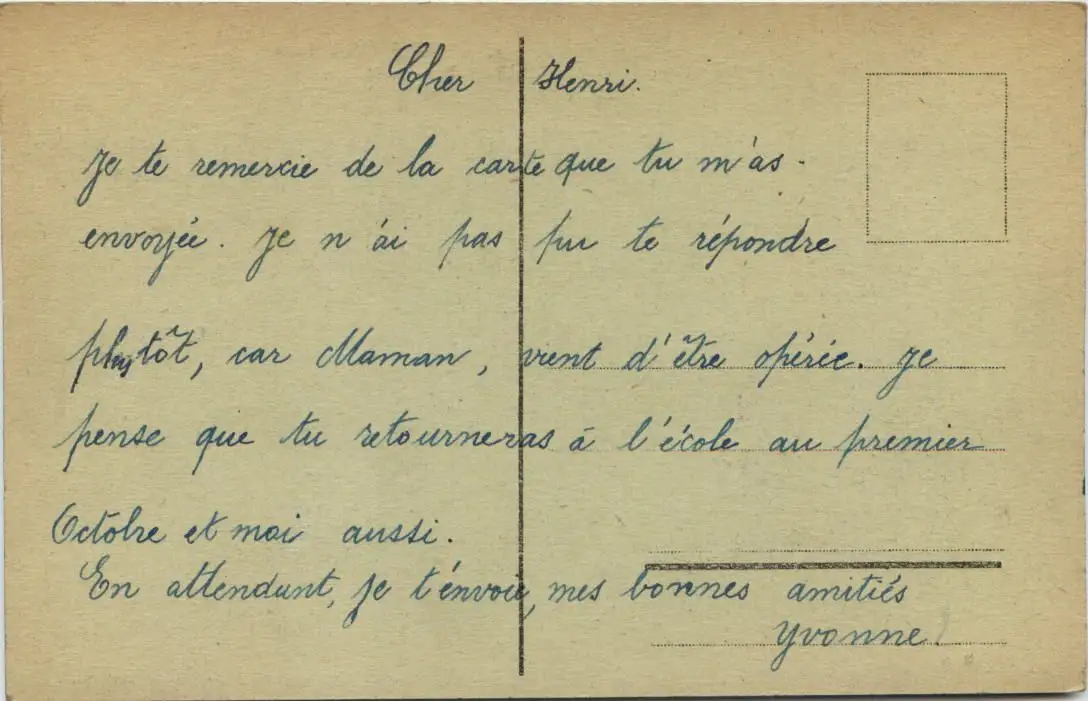 Cher Henri.
Je te remercie de la carte que tu m'as
envoyée. Je n'ai pas pu te répondre
plutôt, car Maman, vient d'être opérée. Je
pense que tu retourneras à l'école au premier
Octobre et moi aussi.
En attendant, je t'envoie, mes bonnes amitiés
Yvonne.